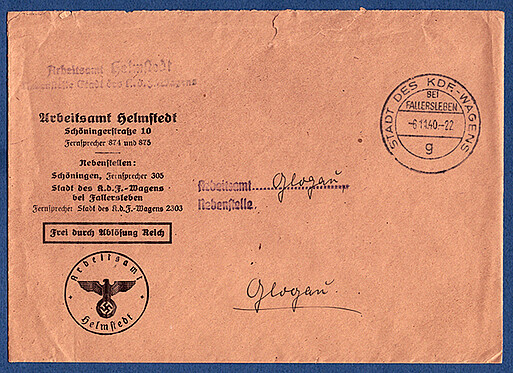 Arbeitsamt Helmstedt
Nebenstelle Stadt des K.d.F.-Wagens
Arbeitsamt Helmstedt
Schöningerstraße 10
Fernsprecher 874 und 875
Nebenstellen:
Schöningen, Fernsprecher 305
Stadt des K.d.F.-Wagens
bei Fallersleben
Fernsprecher: Stadt des K.d.F.-Wagens 2303
Frei durch Ablösung Reich
Arbeitsamt
Helmstedt
STADT DES KDF-WAGENS
BEI
FALLERSLEBEN
-6.11.40.-22
g
Arbeitsamt Glogau
Nebenstelle
Glogau